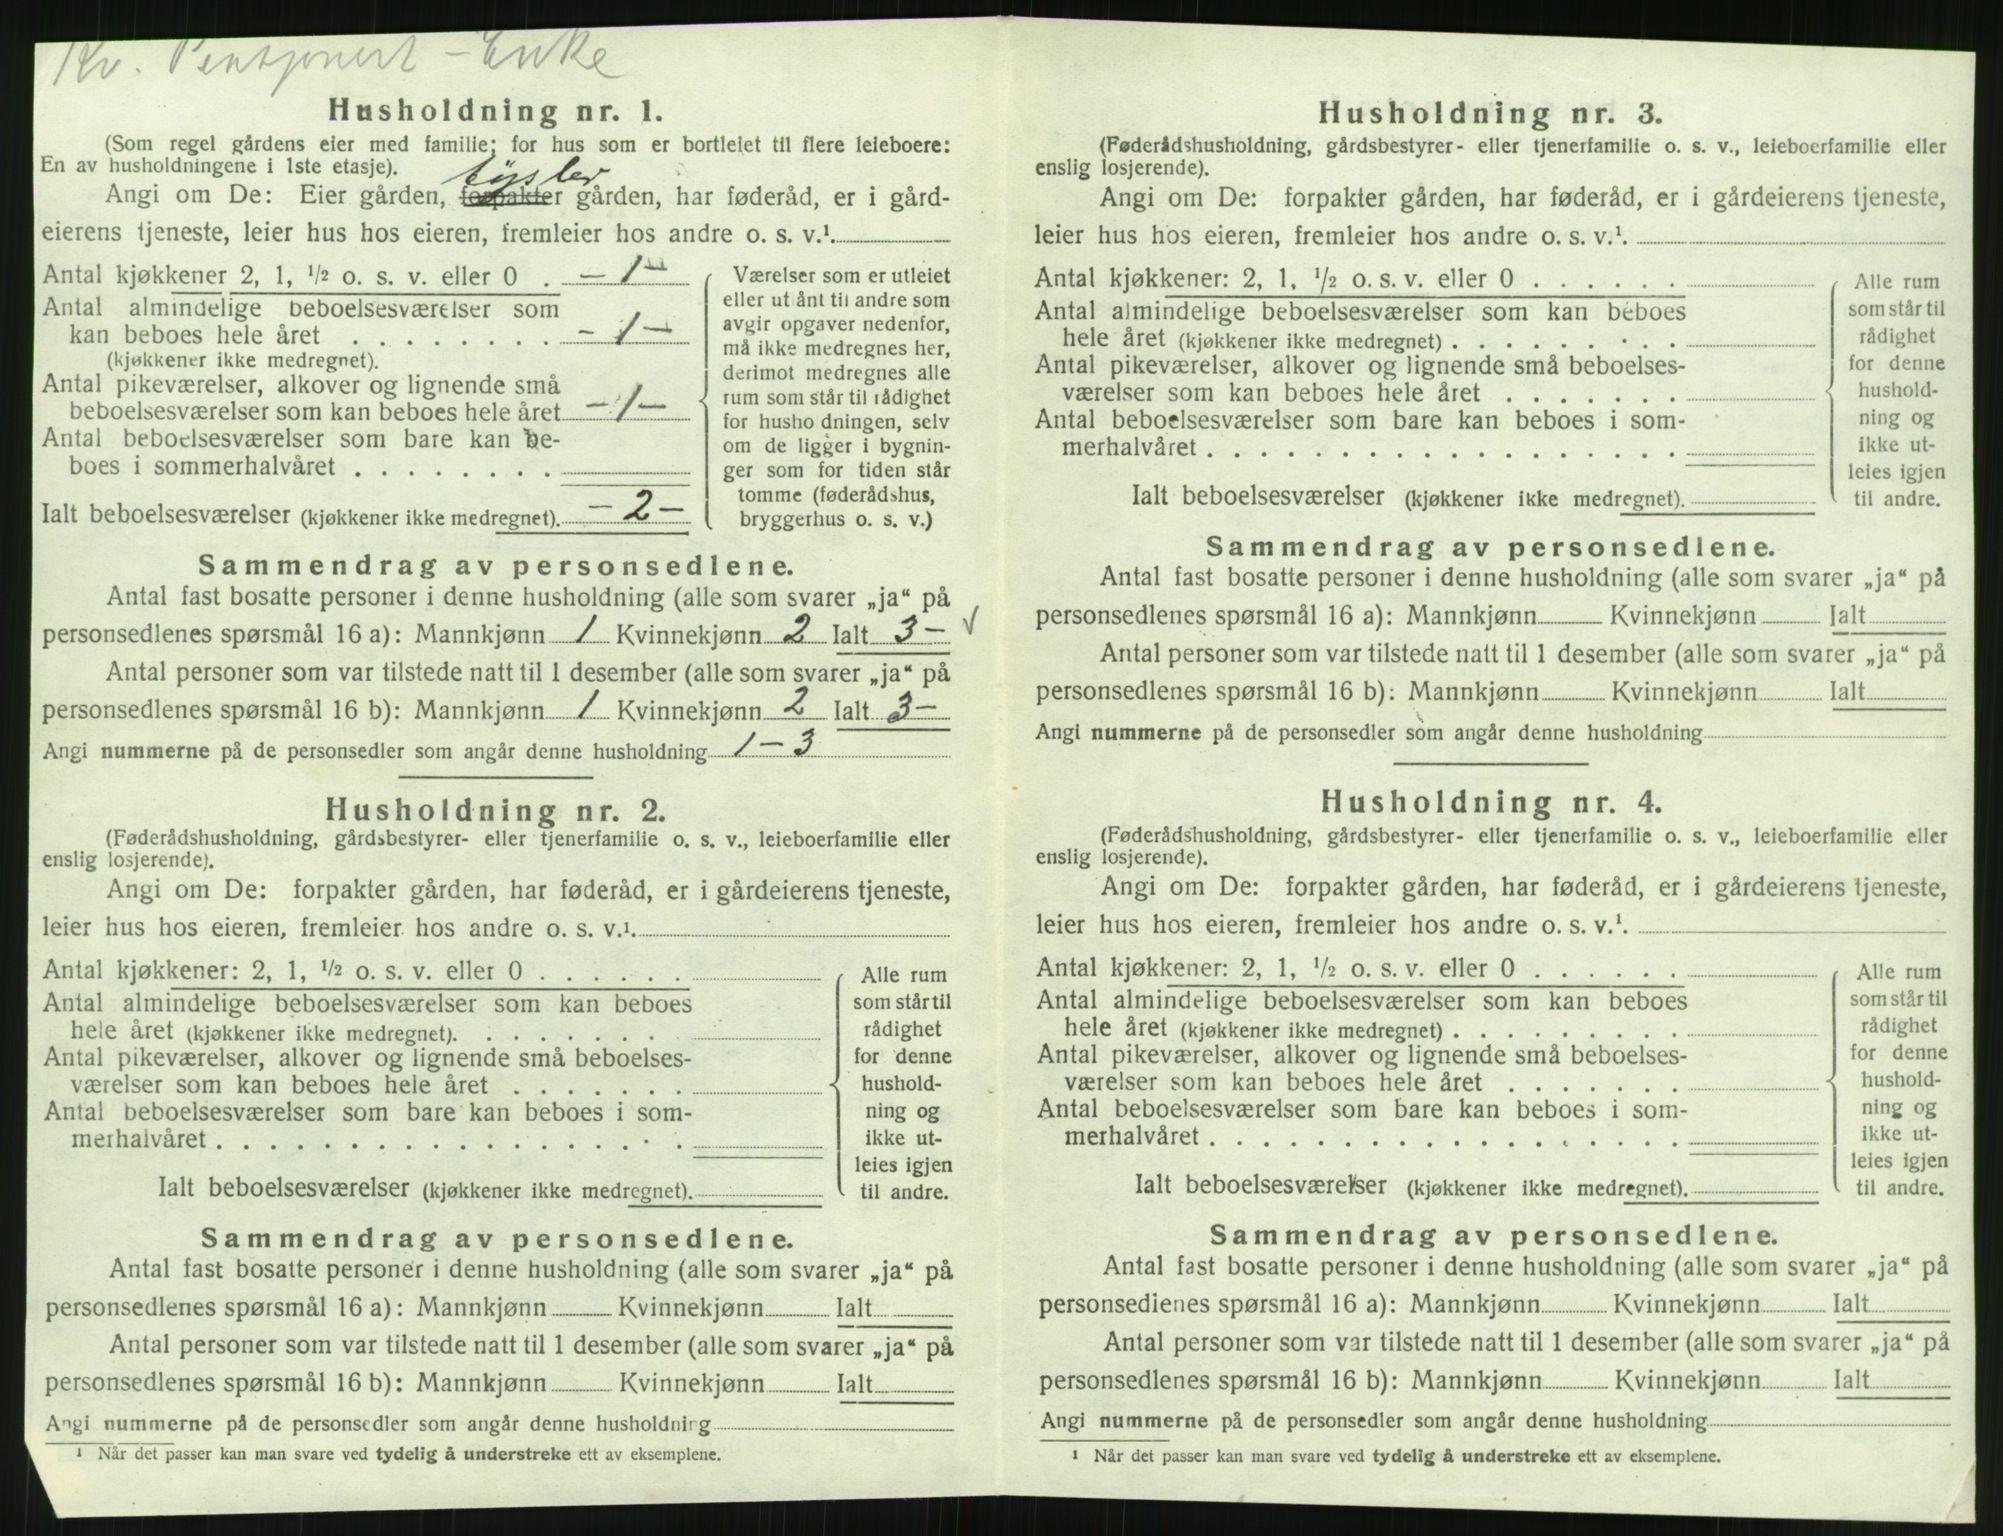 Kv. Pensjonert - Enke
Husholdning nr. 1.
(Som regel gårdens eier med familie; for hus som er bortleiet til flere leieboere:
En av husholdningene i 1ste etasje).
bygsler
Angi om De: Eier gården, forpakter gården, har føderåd, er i gård-
eierens tjeneste, leier hus hos eieren, fremleier hos andre o. s. v.¹.
Antal kjøkkener 2, 1, ½ o. s. v. eller 0 . - 1 -
Antal almindelige beboelsesværelser som
kan beboes hele året . . . . . . . . - 1 -
(kjøkkener ikke medregnet).
Antal pikeværelser, alkover og lignende små
beboelsesværelser som kan beboes hele året - 1 -
Antal beboelsesværelser som bare kan be-
boes i sommerhalvåret . . . . . . . .
Ialt beboelsesværelser (kjøkkener ikke medregnet). - 2 -
Værelser som er utleiet
eller ut ånt til andre som
avgir opgaver nedenfor,
må ikke medregnes her,
derimot medregnes alle
rum som står til rådighet
for husho dningen, selv
om de ligger i bygnin-
ger som for tiden står
tomme (føderådshus,
bryggerhus o. s. v.)
Sammendrag av personsedlene.
Antal fast bosatte personer i denne husholdning (alle som svarer „ja“ på
personsedlenes spørsmål 16 a): Mannkjønn 1 Kvinnekjønn 2 Ialt 3 - ✓
Antal personer som var tilstede natt til 1 desember (alle som svarer „ja“ på
personsedlenes spørsmål 16 b): Mannkjønn 1 Kvinnekjønn 2 Ialt 3 -
Angi nummerne på de personsedler som angår denne husholdning 1 - 3
Husholdning nr. 2.
(Føderådshusholdning, gårdsbestyrer- eller tjenerfamilie o. s. v., leieboerfamilie eller
enslig losjerende).
Angi om De: forpakter gården, har føderåd, er i gårdeierens tjeneste,
leier hus hos eieren, fremleier hos andre o. s. v.¹.
Antal kjøkkener: 2, 1, ½ o. s. v. eller 0 . . . . . .
Antal almindelige beboelsesværelser som kan beboes
hele året (kjøkkener ikke medregnet). . . . . . . . .
Antal pikeværelser, alkover og lignende små beboelses-
værelser som kan beboes hele året . . . . . . .
Antal beboelsesværelser som bare kan beboes i som-
merhalvåret . . . . . . . . . . . . . . . . . .
Ialt beboelsesværelser (kjøkkener ikke medregnet).
Alle rum
som står til
rådighet
for denne
hushold-
ning og
ikke ut-
leies igjen
til andre.
Sammendrag av personsedlene.
Antal fast bosatte personer i denne husholdning (alle som svarer „ja“ på
personsedlenes spørsmål 16 a): Mannkjønn Kvinnekjønn Ialt
Antal personer som var tilstede natt til 1 desember (alle som svarer „ja“ på
personsedlenes spørsmål 16 b): Mannkjønn Kvinnekjønn Ialt
Angi nummerne på de personsedler som angår denne husholdning
¹ Når det passer kan man svare ved tydelig å understreke ett av eksemplene.
Husholdning nr. 3.
(Føderådshusholdning, gårdsbestyrer- eller tjenerfamilie o. s. v., leieboerfamilie eller
enslig losjerende).
Angi om De: forpakter gården, har føderåd, er i gårdeierens tjeneste,
leier hus hos eieren, fremleier hos andre o. s. v.¹.
Antal kjøkkener: 2, 1, ½ o. s. v. eller 0 . . . . . .
Antal almindelige beboelsesværelser som kan beboes
hele året (kjøkkener ikke medregnet) . . . . . . . . .
Antal pikeværelser, alkover og lignende små beboelses-
værelser som kan beboes hele året . . . . . . .
Antal beboelsesværelser som bare kan beboes i som-
merhalvåret . . . . . . . . . . . . . . . . . .
Ialt beboelsesværelser (kjøkkener ikke medregnet).
Alle rum
som står til
rådighet
for denne
hushold-
ning og
ikke ut-
leies igjen
til andre.
Sammendrag av personsedlene.
Antal fast bosatte personer i denne husholdning (alle som svarer „ja“ på
personsedlenes spørsmål 16 a): Mannkjønn Kvinnekjønn Ialt
Antal personer som var tilstede natt til 1 desember (alle som svarer „ja“ på
personsedlenes spørsmål 16 b): Mannkjønn Kvinnekjønn Ialt
Angi nummerne på de personsedler som angår denne husholdning
Husholdning nr. 4.
(Føderådshusholdning, gårdsbestyrer- eller tjenerfamilie o. s. v., leieboerfamilie eller
enslig losjerende).
Angi om De: forpakter gården, har føderåd, er i gårdeierens tjeneste,
leier hus hos eieren, fremleier hos andre o. s. v.¹.
Antal kjøkkener: 2, 1, ½ o. s. v. eller 0 . . . . . .
Antal almindelige beboelsesværelser som kan beboes
hele året (kjøkkener ikke medregnet) . . . . . . . . .
Antal pikeværelser, alkover og lignende små beboelses-
værelser som kan beboes hele året . . . . . . .
Antal beboelsesværelser som bare kan beboes i som-
merhalvåret . . . . . . . . . . . . . . . . . .
Ialt beboelsesværelser (kjøkkener ikke medregnet).
Alle rum
som står til
rådighet
for denne
hushold-
ning og
ikke ut-
leies igjen
til andre.
Sammendrag av personsedlene.
Antal fast bosatte personer i denne husholdning (alle som svarer „ja“ på
personsedlenes spørsmål 16 a): Mannkjønn Kvinnekjønn Ialt
Antal personer som var tilstede natt til 1 desember (alle som svarer „ja“ på
personsedlenes spørsmål 16 b): Mannkjønn Kvinnekjønn Ialt
Angi nummerne på de personsedler som angår denne husholdning
¹ Når det passer kan man svare ved tydelig å understreke ett av eksemplene.